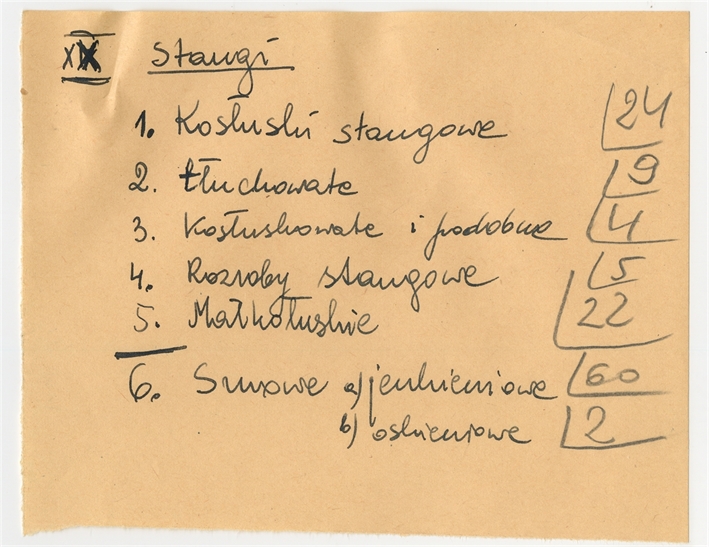 XIX Stangi
1. Kosłuski stangowe 24
2. tłuchowate 9
3. Kosłuskowate i podobne 4
4. Rozroby stangowe 5
5. Małkołuskie 22
6. Smowe a) jenkieniowe 60
b) oskieniowe 2